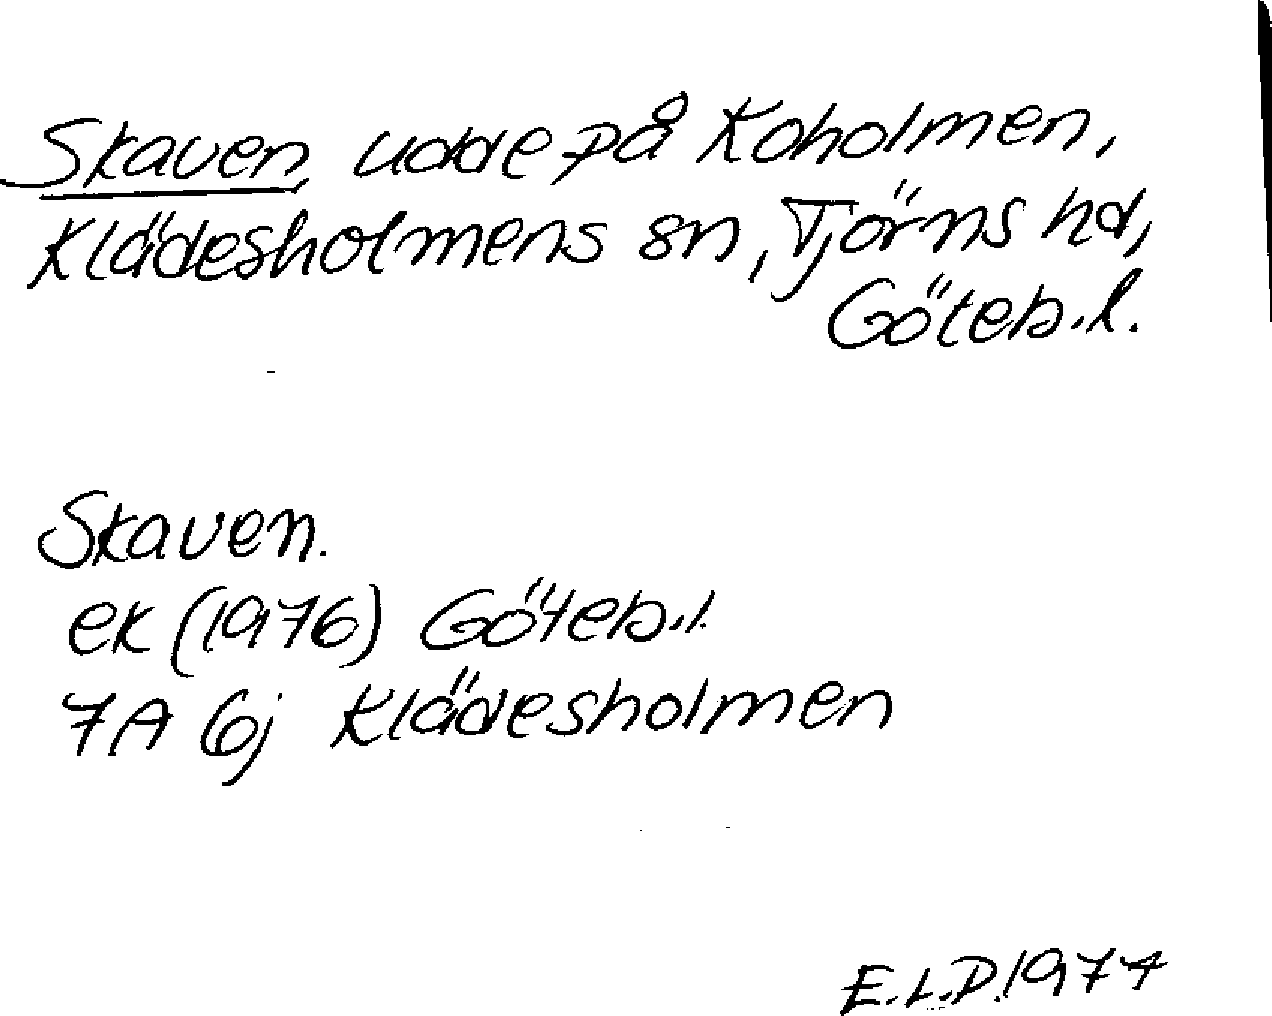 Skaven, udde på Koholmen,
Klädesholmens sn, Tjörns hd,
Göteb.l.
Skaven.
ek (1976) Göteb.l.
7A 6j Klädesholmen
E.L.D. 1977